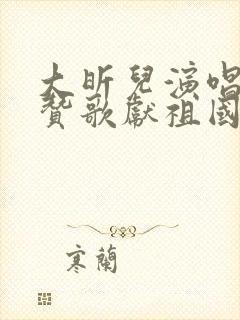 大昕兒演唱
贊歌獻祖國
寒蘭